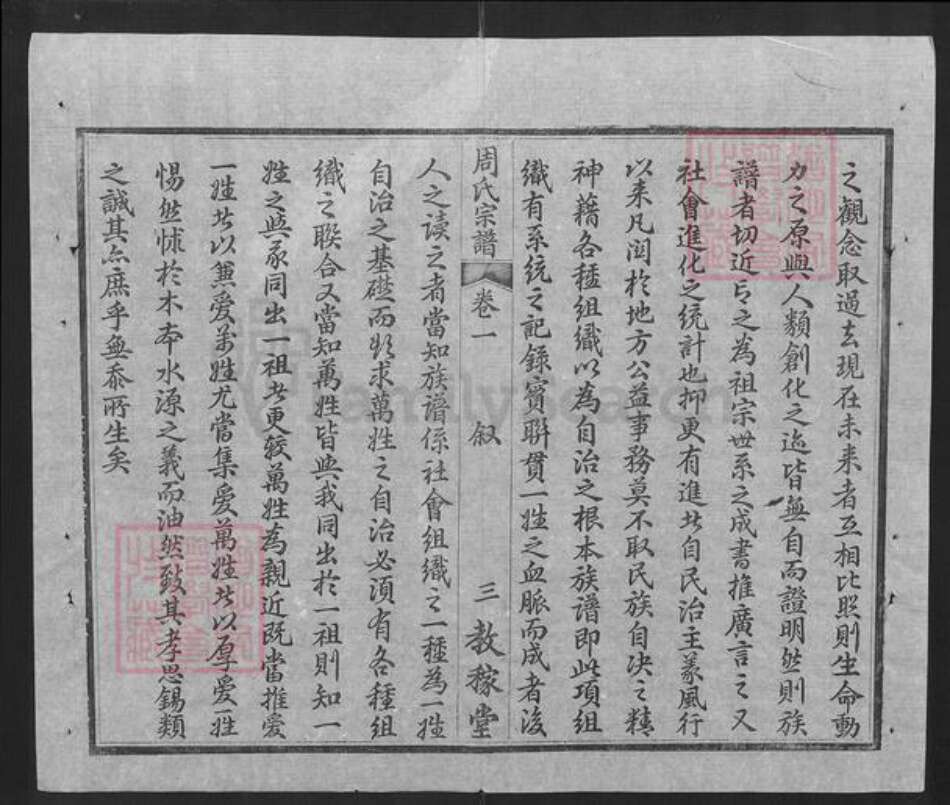 之觀念取過去現在未来者互相比照則生命動
力之原與人類創化之迹皆無自而證明然則族
譜者切近言之為祖宗世系之成書推廣言之又
社會進化之統計也抑更有進步自民治主義風行
以来凡関於地方公益事務莫不取民族自决之精
神藉各種組織以為自治之根本族譜即此項組
織有系統之記錄實聯貫一姓之血脈而成者後
周氏宗譜 卷一 叙 三 教稼堂
人之读之者當知族譜係社會組織之一種為一姓
自治之基礎而欲求萬姓之自治必須有各種組
織之聯合又當知萬姓皆與我同出於一祖則知一
姓之與我同出一祖者更較萬姓為親近既當推愛
一姓者以兼愛萬姓尤當集愛萬姓者以厚愛一姓
惕然悚於木本水源之義而油然致其孝思錫類
之誠其亦庶乎無忝所生矣
familysearch